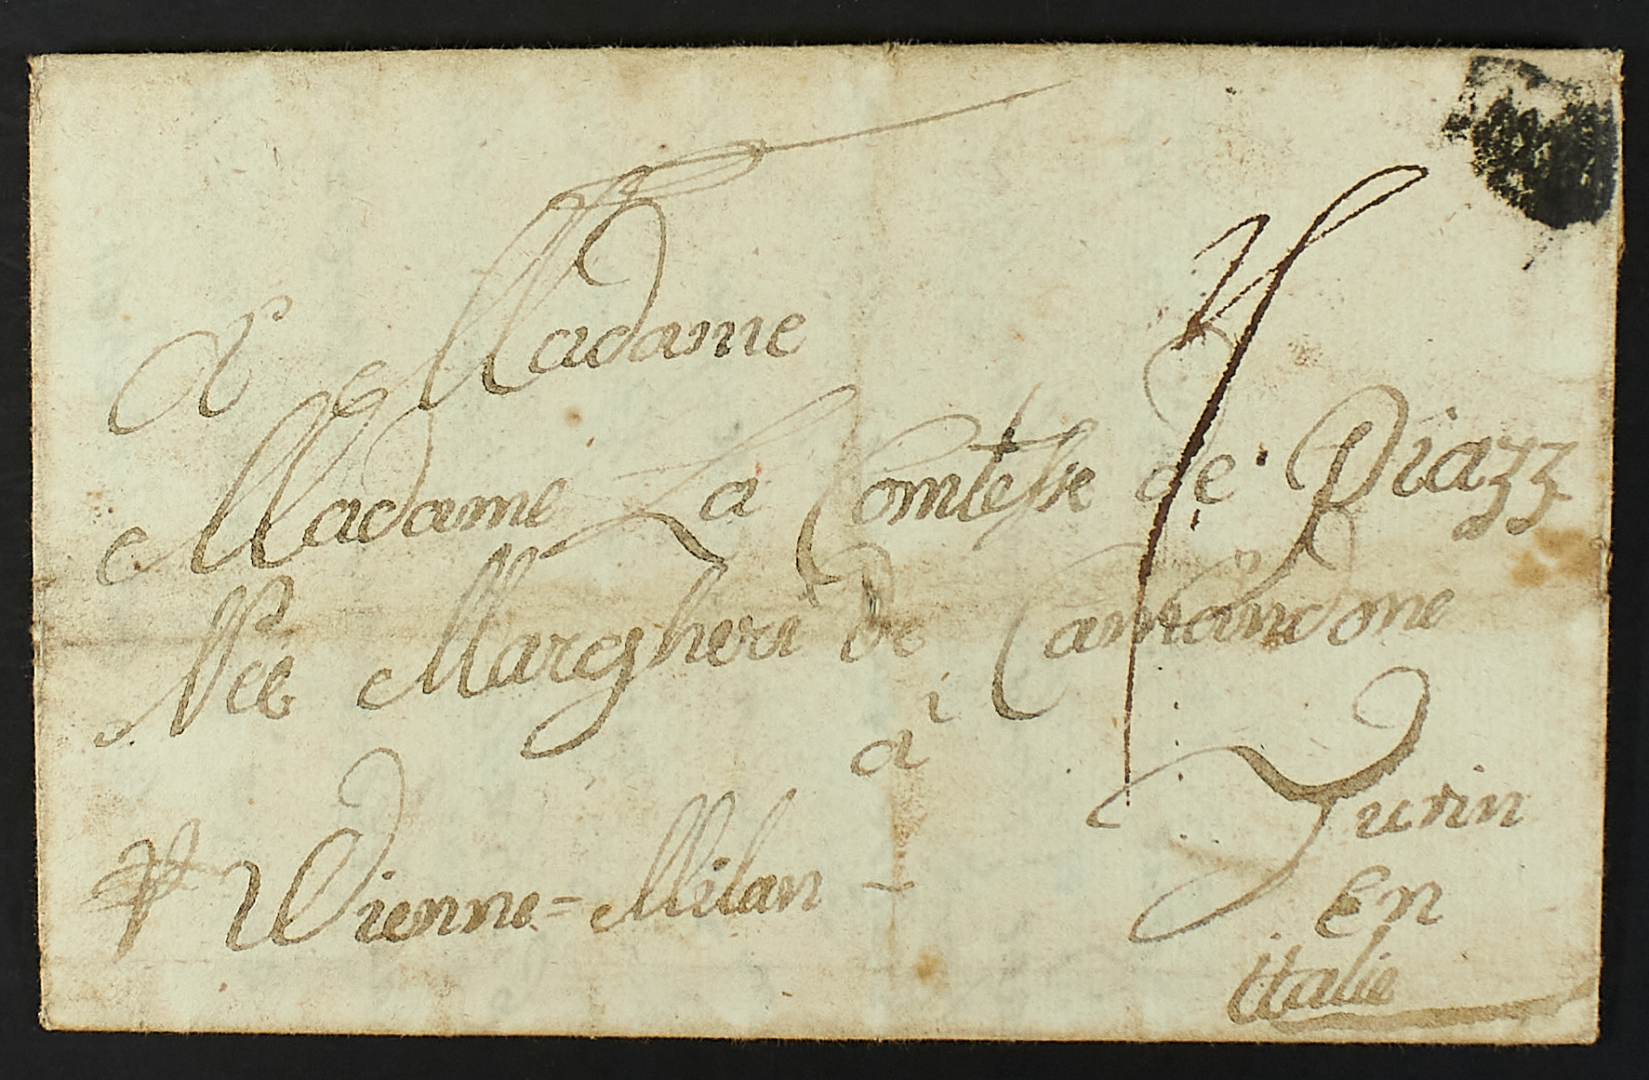 A Madame
Madame La Comtesse de Piazz
Née Margheri de
a
Turin
En
italie
Wienne = Milan -